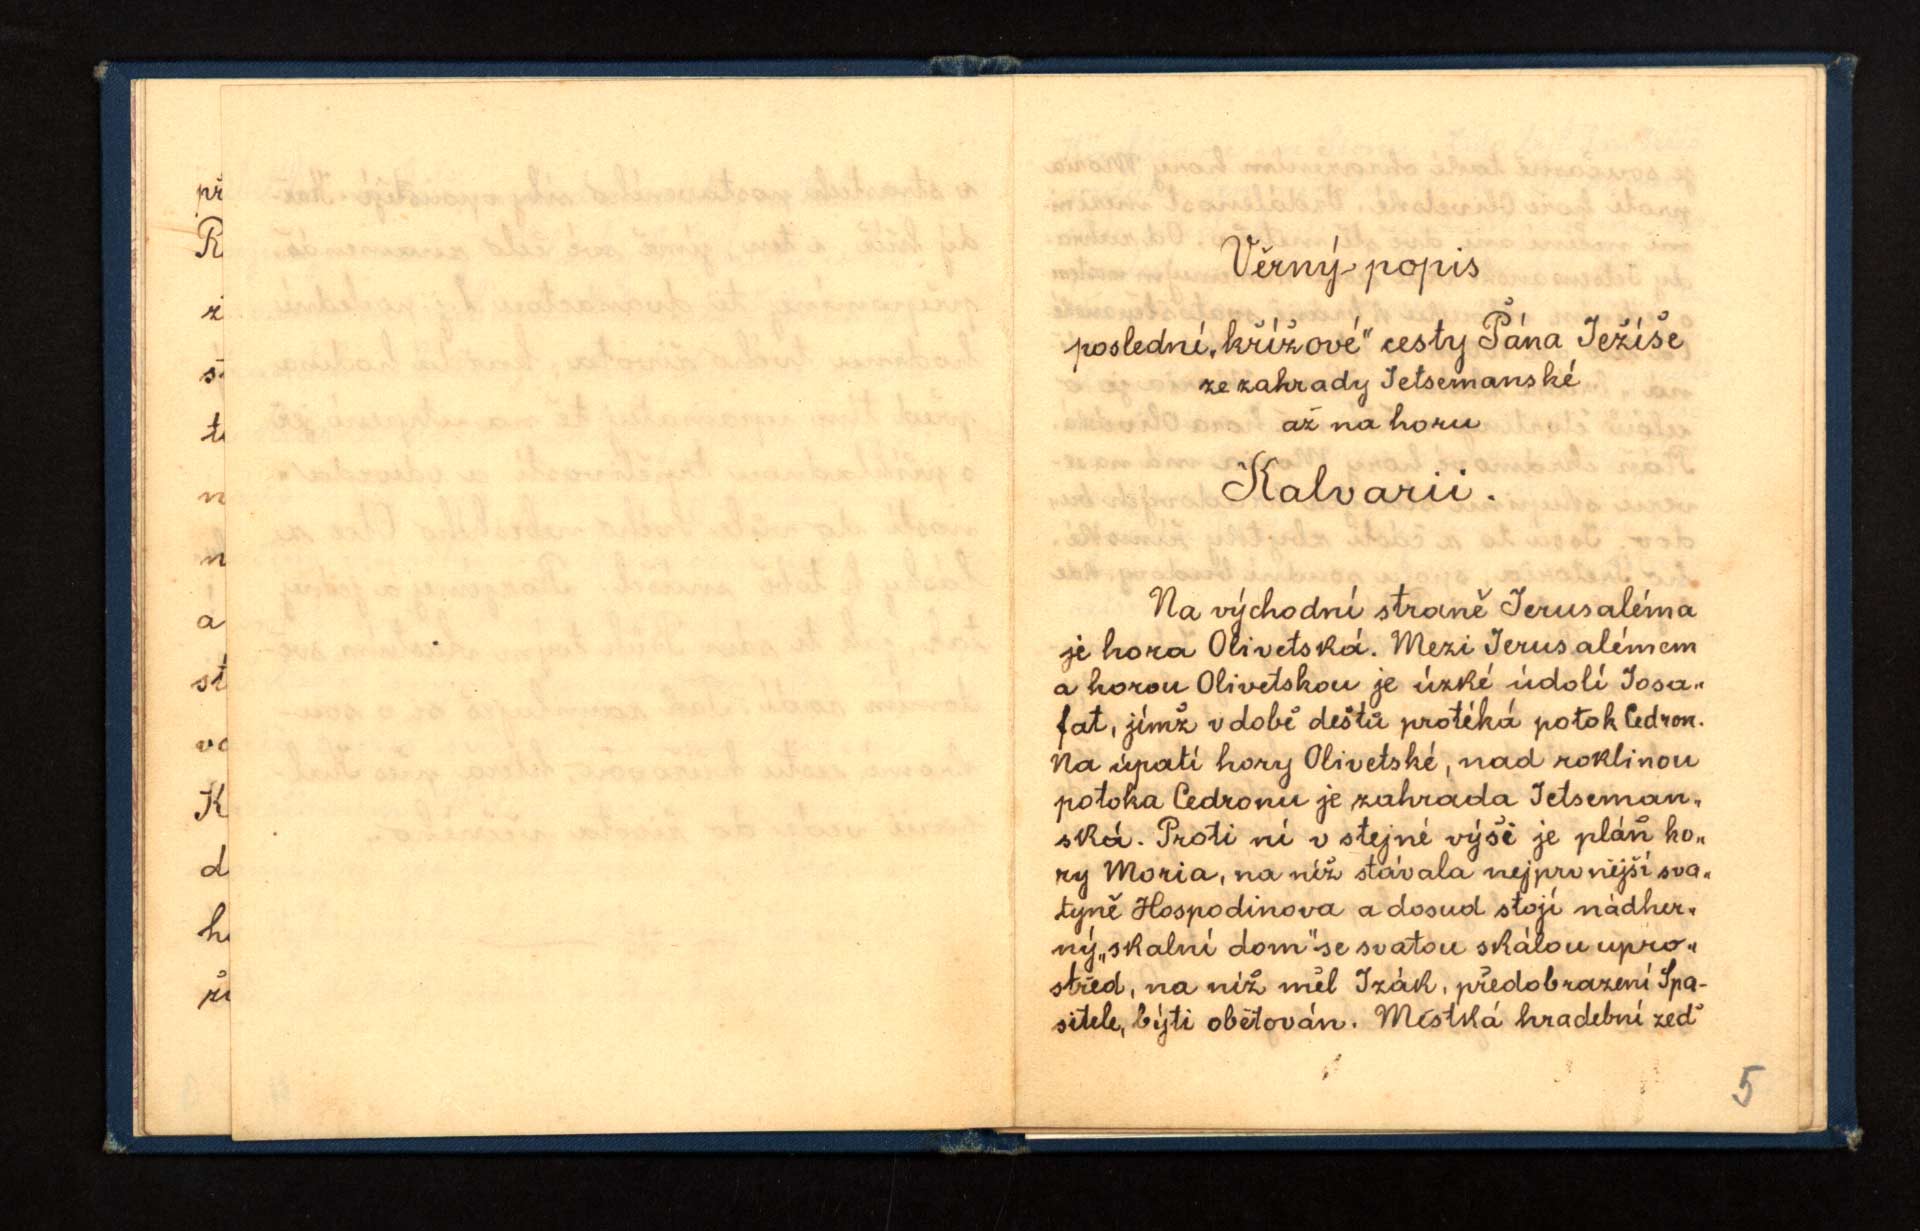 př
R
z
s
te
n
n
a
st
vo
K
d
h
Věrný popis
poslední „křížové“ cesty Pána Ježíše
ze zahrady Jetsemanské
až na horu
Kalvarii.
Na východní straně Jerusaléma
je hora Olivetská. Mezi Jerusalémem
a horou Olivetskou je úzké údolí Josa„
fat, jímž v době dešťů protéká potok Cedron.
Na úpatí hory Olivetské, nad roklinou
potoka Cedronu je zahrada Jetseman„
ská. Proti ní v stejné výši je pláň ho„
ry Moria, na níž stávala nejprvnější sva„
tyně Hospodinova a dosud stojí nádher„
ný „skalní dom“ se svatou skálou upro„
střed, na níž měl Izák, předobrazení Spa-
sitele, býti obětován. Městká hradební zeď
5